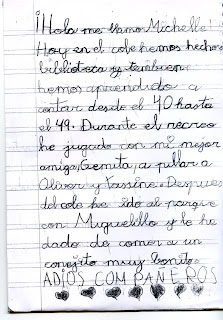 ¡Hola me llamo Michelle!
Hoy en el cole hemos hechos
biblioteca y tambien
hemos aprendido a
contar desde el 40 hasta
el 49. Durante el recreo
he jugado con mi mejor
amiga, Gemita, a pillar a
Oliver y Yassine. Despues
del cole he ido al parque
con Miguelillo y le he
dado de comer a un
conejito muy bonito.
ADIOS COMPAÑEROS